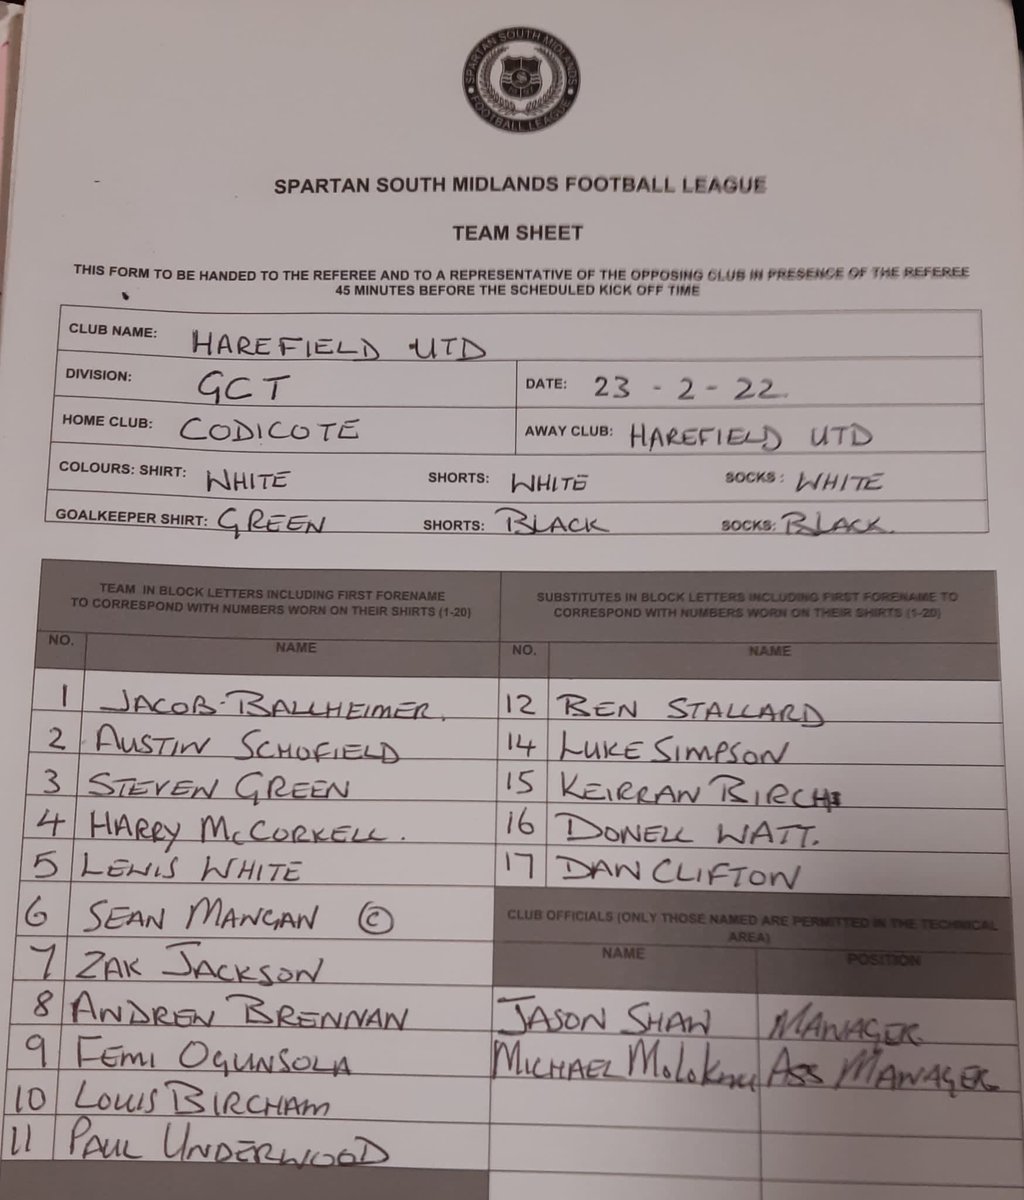 SPARTAN SOUTH MIDLANDS
FOOTBALL LEAGUE
SPARTAN SOUTH MIDLANDS FOOTBALL LEAGUE
TEAM SHEET
THIS FORM TO BE HANDED TO THE REFEREE AND TO A REPRESENTATIVE OF THE OPPOSING CLUB IN PRESENCE OF THE REFEREE
45 MINUTES BEFORE THE SCHEDULED KICK OFF TIME
CLUB NAME: HAREFIELD UTD
DIVISION: GCT DATE: 23-2-22
HOME CLUB: CODICOTE AWAY CLUB: HAREFIELD UTD
COLOURS: SHIRT: WHITE SHORTS: WHITE SOCKS: WHITE
GOALKEEPER SHIRT: GREEN SHORTS: BLACK SOCKS: BLACK
TEAM IN BLOCK LETTERS INCLUDING FIRST FORENAME
TO CORRESPOND WITH NUMBERS WORN ON THEIR SHIRTS (1-20)
NO. NAME
1 JACOB BALLHEIMER
2 AUSTIN SCHOFIELD
3 STEVEN GREEN
4 HARRY McCORKELL.
5 LEWIS WHITE
6 SEAN MANGAN ©
7 ZAK JACKSON
8 ANDREW BRENNAN
9 FEMI OGUNSOLA
10 LOUIS BIRCHAM
11 PAUL UNDERWOOD
SUBSTITUTES IN BLOCK LETTERS INCLUDING FIRST FORENAME TO
CORRESPOND WITH NUMBERS WORN ON THEIR SHIRTS (1-20)
NO. NAME
12 BEN STALLARD
14 LUKE SIMPSON
15 KEIRRAN BIRCH
16 DONELL WATT.
17 DAN CLIFTON
CLUB OFFICIALS (ONLY THOSE NAMED ARE PERMITTED IN THE TECHNICAL
AREA)
NAME POSITION
JASON SHAW MANAGER
MICHAEL ASS MANAGER